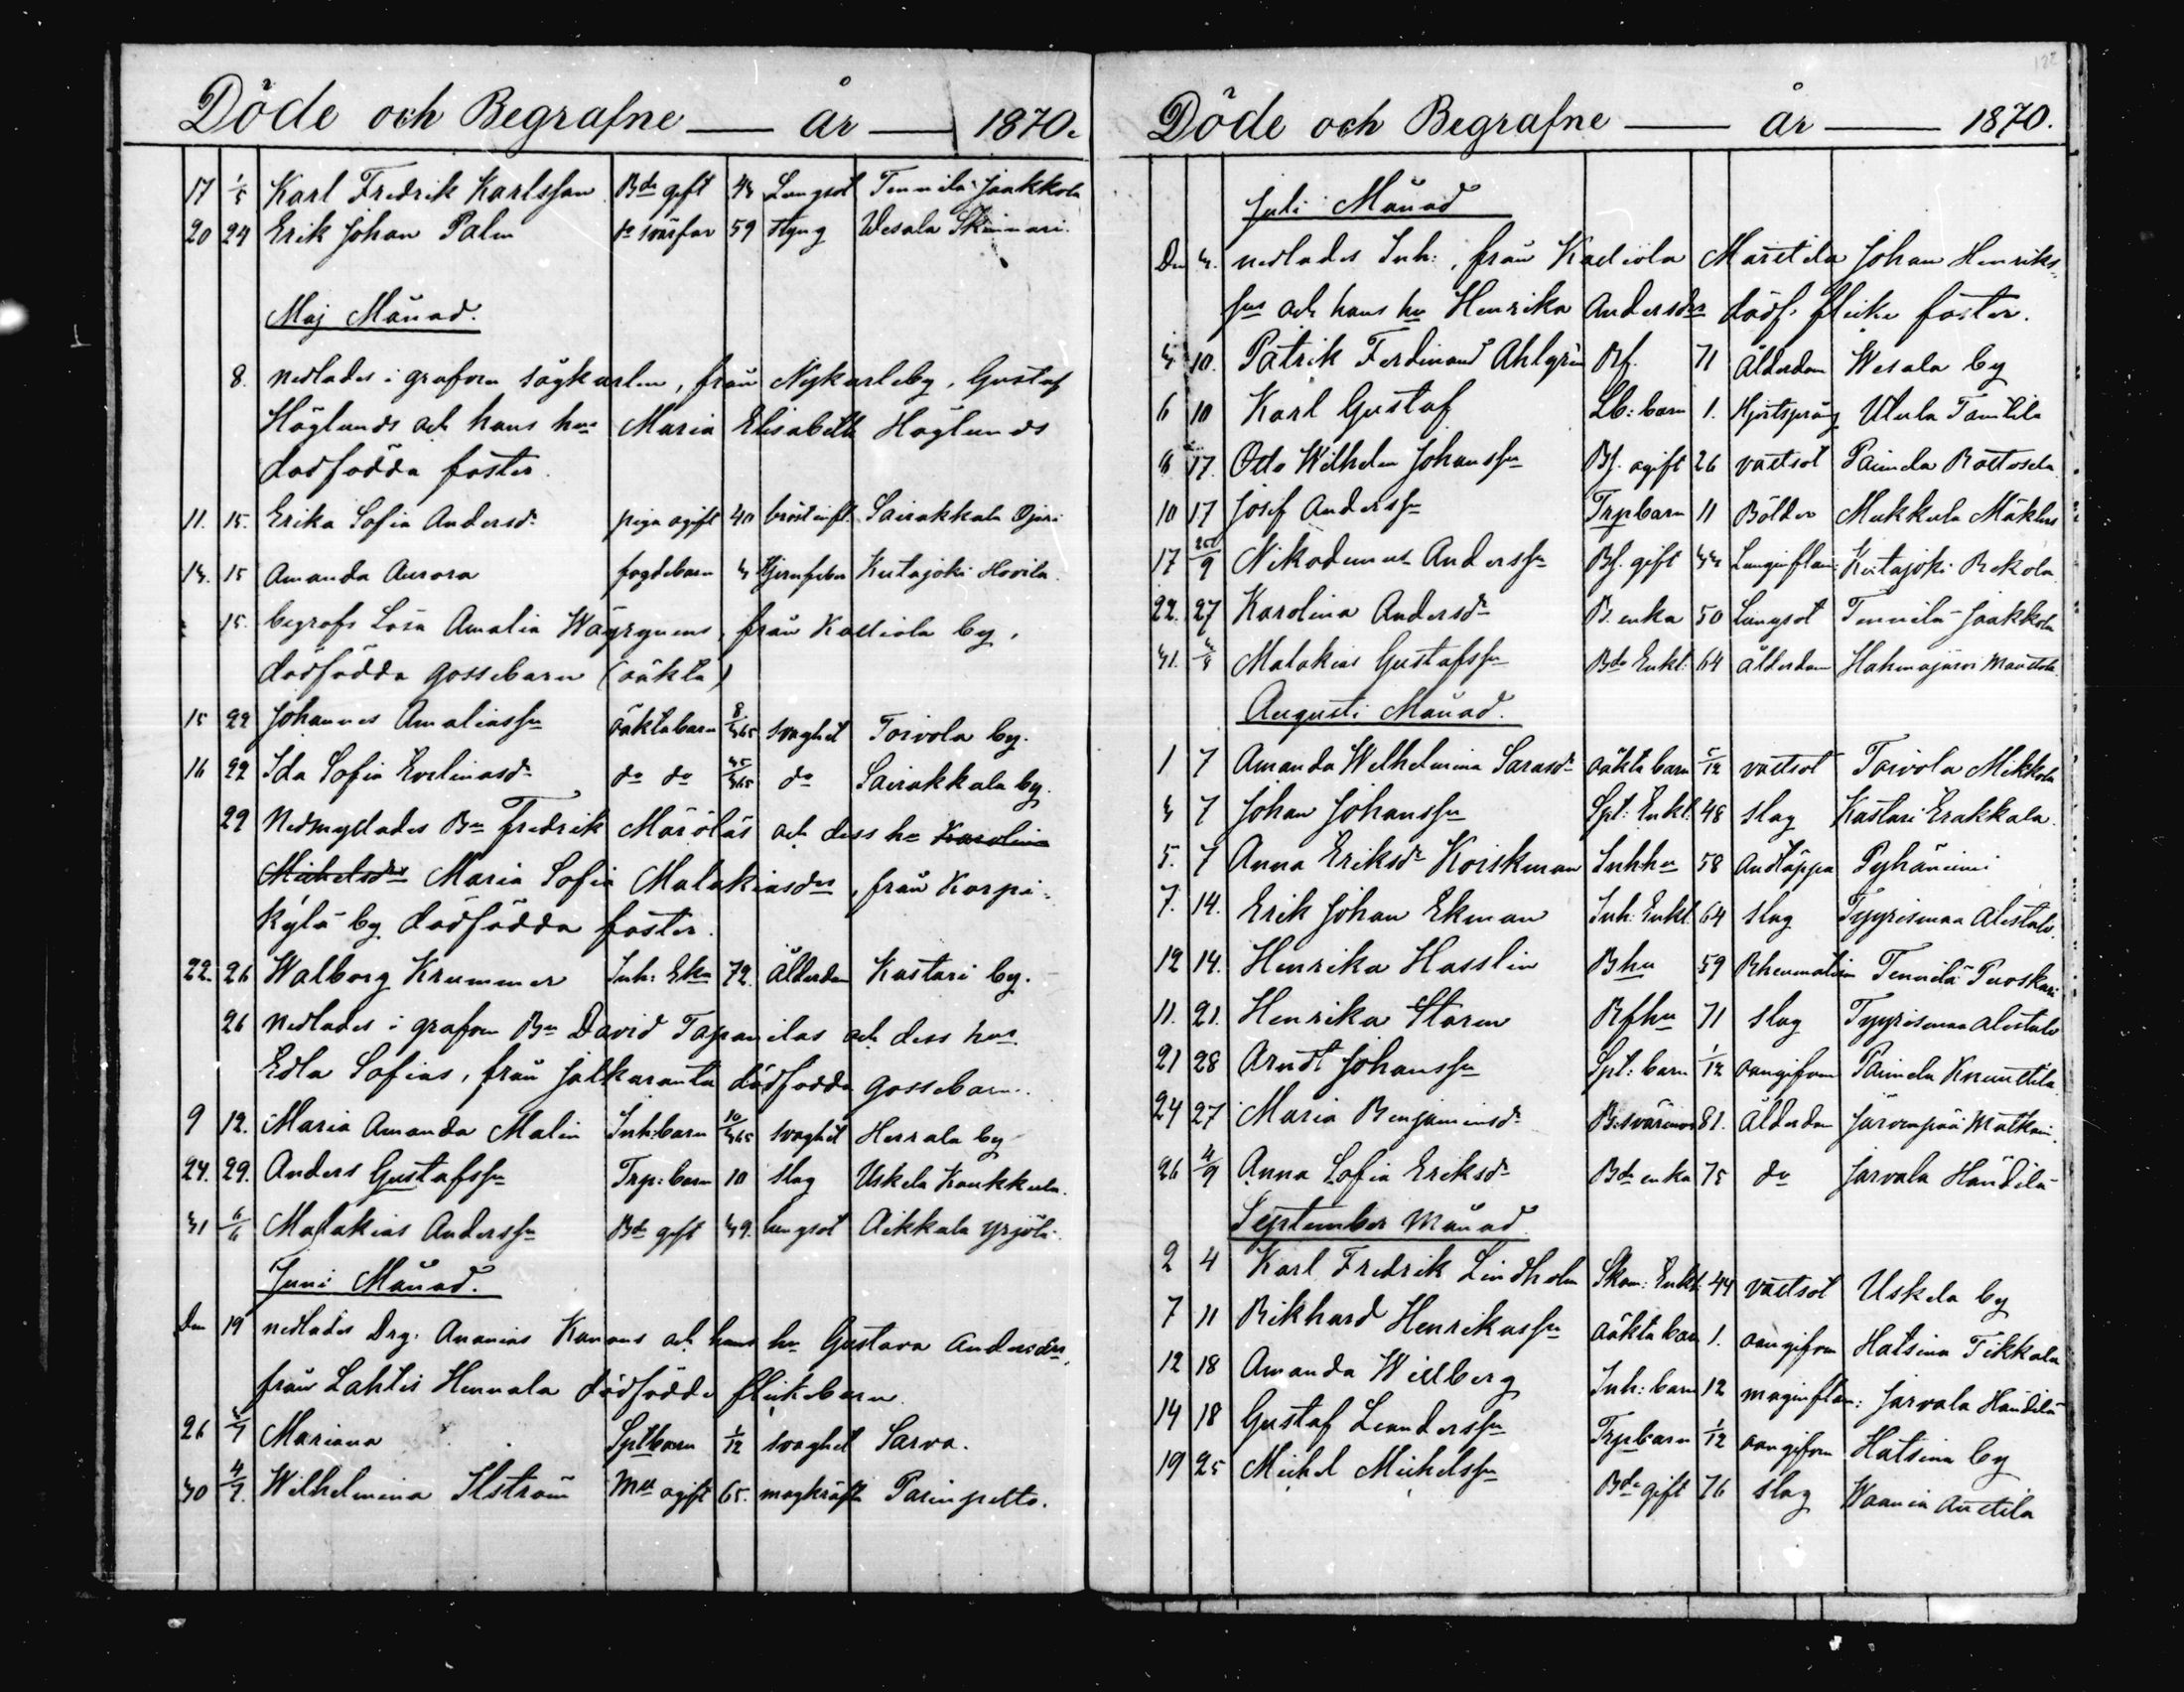 Döde och Begrafne år 1870.
17 1/5 Karl Fredrik Karlsson Bde gift 43 Lungsot Tennilä Jaakkola
20 24 Erik Johan Palm do svärfar 59 styng Wesala Skinnari.
Maj Månad.
8. nedlades i grafven sågkarlen, från Nykarleby, Gustaf
Höglunds och hans hus Maria Elisabeth Höglunds
dödfödda foster.
11. 15. Erika Sofia Andersdr piga ogift 40 bröstinfl. Sairakkala
13. 15 Amanda Aurora fogdebarn 3 Hjernfeber Kutajoki Hovila
15. begrofs Lösa Amalia Wäyrynens, från Kaliola by,
dödfödda gossebarn (oäkta)
15 22 Johannes Amaliasson oäktabarn 8/365 svaghet Toivola by.
16 22 Ida Sofia Evelinasdr do do 35/365 do Sairakkala by.
29 Nedmyllades Bn Fredrik Märöläs och dess hu Karolina
Michelsdrs Maria Sofia Malakiasdrs, från Karpi-
kylä by dödfödda foster.
22. 26 Walborg Krummer Inh: Eka 72. Ålderdom Kastari by.
26 nedlades i grafven Bn David Tapanilas och dess hus
Edla Sofias, från Jalkaranta dödfödda gossebarn.
9 12. Maria Amanda Malin Inh:barn 10/365 svaghet Herrala by
24. 29. Anders Gustafsson Trp: barn 10 slag Uskela Kaukkala.
31 6/6 Malakias Andersson Bde gift 39. lungsot Aikkala Yrjölä.
Juni Månad.
Den 19 nedlades Drg. Ananias Kanans och hans hu Gustava Andersdrs,
från Lahtis Hennala dödfödda flickebarn.
26 3/7 Mariana Sptbarn 1/12 svaghet Sarva.
30 4/7. Wilhelmina Ilström Mll ogift 65. magkräfta Parinpelto.
Döde och Begrafne år 1870.
Juli Månad
Den 3. nedlades Inh:, från Kaliola Marttila Johan Henriks-
sons och hans hu Henrika Andersdrs dödf. flicke foster.
3 10. Patrik Ferdinand Ahlgrén Rf. 71 Ålderdom Wesala by
6 10 Karl Gustaf Lb: barn 1. Hjertsprång Utula Tanttila
8 17. Otto Wilhelm Johansson Bf. ogift 26 vattsot Paimela Rottosela
10 17 Josef Andersson Trpbarn 11 Bölder Mukkula Mäkelä
17 9 Nikodemus Andersson Bf. gift 33 Lunginflam: Kutajoki Rekola
22. 27 Karolina Andersdr B. enka 50 Lungsot Tennilä Jaakkola
31. Malakias Gustafsson Bde Enkl: 64 ålderdom Hahmajärvi Manttila
Augusti Månad.
1 7 Amanda Wilhelmina Sarasdr oäkta barn 5/12 vattsot Toivola Mikkola
3 7 Johan Johansson Spt: Enkl. 48 slag Kastari Erakkala.
5. 7 Anna Eriksdr Koiskman Inhhu 58 Andtäppa Pyhäniemi
7. 14. Erik Johan Ekman Inh: Enkl. 64 slag Tyyrismaa Alestalo.
12 14. Henrika Hasslin Bhu 59 Rheumatism Tennilä Puoskari
11. 21. Henrika Staren Rfhu 71 slag Tyyrismaa Alestalo
21 28 Arndt Johansson Spt: barn 1/12 oangifven Paimela Knuuttila
24 27 Maria Benjaminsdr B.svärmor 81. Ålderdom Järvenpää Matkani.
26 4/9 Anna Sofia Eriksdr Bde enka 75 do Järvala Händilä
September Månad.
2 4 Karl Fredrik Lindholm Skom: Enkl. 44 vattsot Uskela by
7 11 Rikhard Henrikasson oäkta barn 1. oangifven Hatsina Tikkala
12 18 Amanda Willberg Inh: barn 12 maginflam: Järvala Händilä
14 18 Gustaf Leandersson Trpbarn 1/12 oangifven Hatsina by
19 25 Michel Michelsson Bde gift 76 slag Waania Anttila